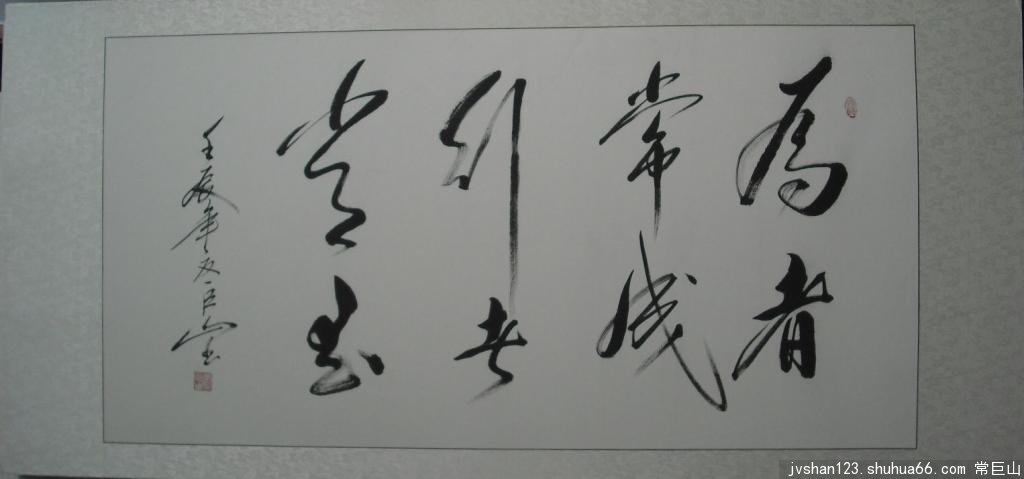 為者
常成
行者
常至
壬辰年冬巨山
jvshan123.shuhua66.com 常巨山